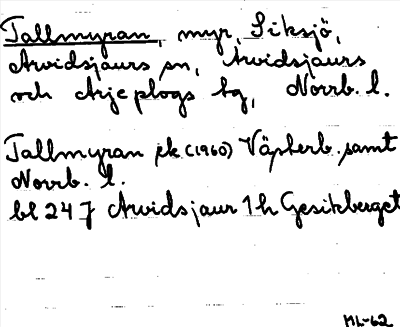 Tallmyran, myr, Siksjö,
Arvidsjaurs sn, Arvidsjaurs
och Arjeplogs tg, Norrb. l.
Tallmyran ek (1960) Västerb. samt
Norrb. l.
bl 24 J Arvidsjaur 1 h Gesikberget
ML-62